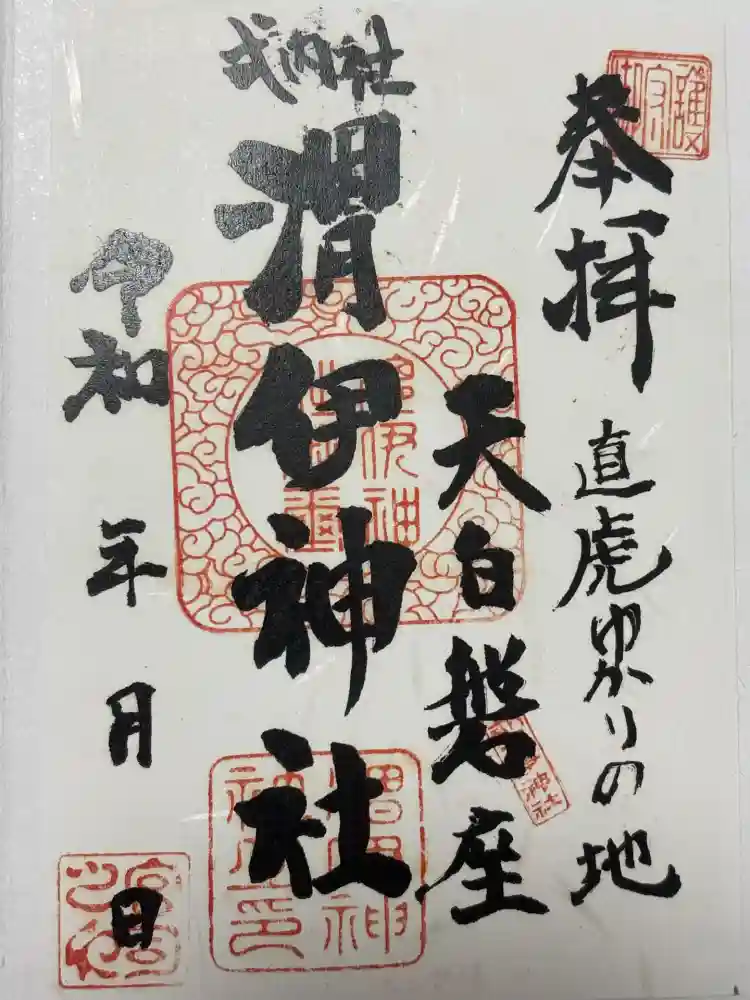 奉拝
直虎ゆかりの地
天白磐座
式内社
渭伊神社
令和
年
月
日
神社